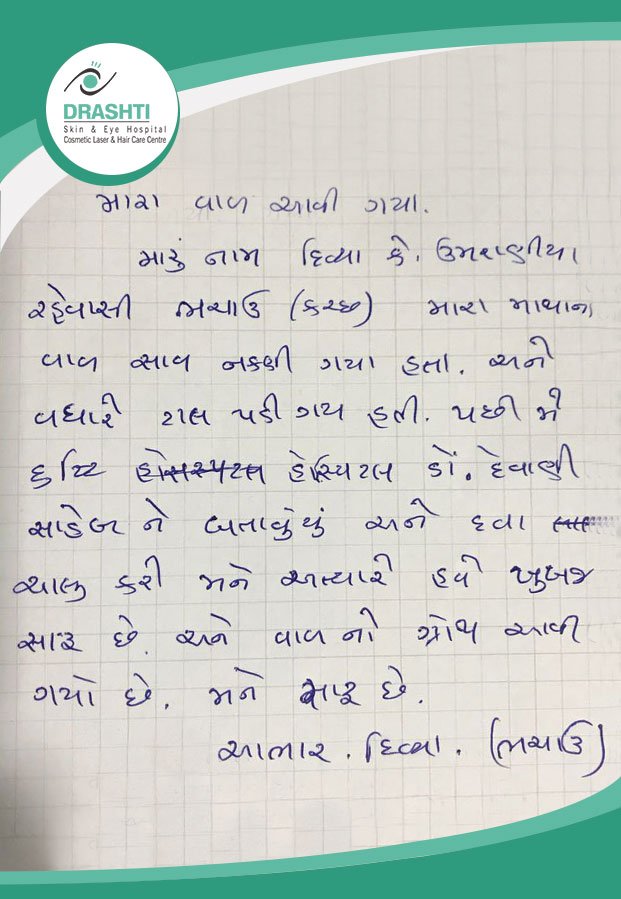 DRASHTI
Skin & Eye Hospital
Cosmetic Laser & Hair Care Centre
મારા વાળ આવી ગયા.
મારું નામ દિવ્યા કે. ઉમરાણીયા
રહેવાસી ભચાઉ (કચ્છ) મારા માથાના
વાળ સાવ નકળી ગયા હતા. અને
વધારે ટાલ પડી ગય હતી. પછી મેં
દ્રષ્ટિ હોસ્પિટલ ડૉ. દેવાણી
સાહેબ ને બતાવ્યું અને દવા
ચાલુ કરી મને અત્યારે હવે ખુબજ
સારૂ છે. અને વાળ નો ગ્રોથ આવી
ગયો છે. મને સારૂ છે.
આભાર. દિવ્યા. (ભચાઉ)